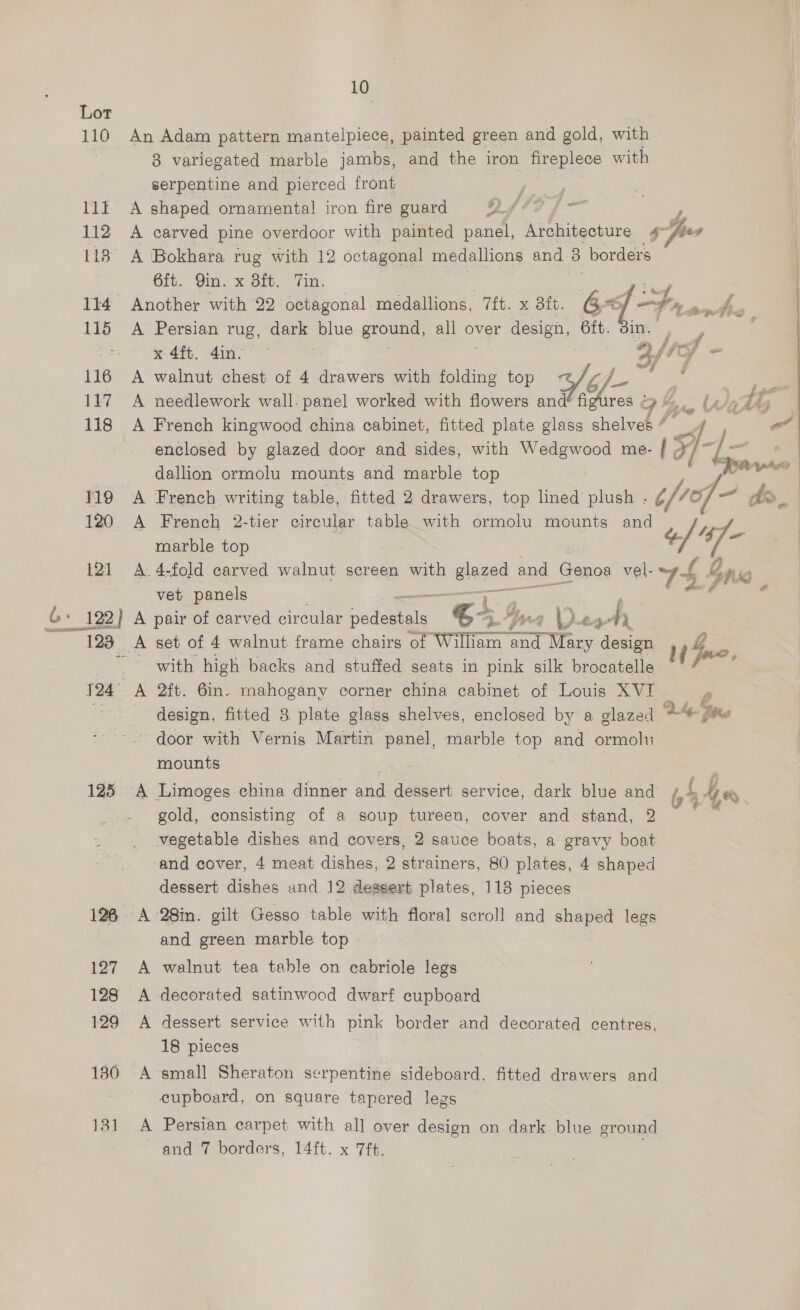 10
Lot
110 An Adam pattern mantelpiece, painted green and gold, with
3 variegated marble jambs, and the iron fireplece with
serpentine and pierced front
111 A shaped ornamental iron fire guard
112 A carved pine overdoor with painted panel, Architecture
113 A Bokhara rug with 12 octagonal medallions and 3 borders
6ft. 9in. x 3ft. 7in.
114 Another with 22 octagonal medallions, 7ft. x 3ft.
115 A Persian rug, dark blue ground, all over design, 6ft. 3in.
x 4ft. 4in.
116 A walnut chest of 4 drawers with folding top
117 A needlework wall panel worked with flowers and figures
118 A French kingwood china cabinet, fitted plate glass shelves
enclosed by glazed door and sides, with Wedgwood me-
dallion ormolu mounts and marble top
119 A French writing table, fitted 2 drawers, top lined plush
120 A French 2-tier circular table with ormolu mounts and
marble top
121 A 4-fold carved walnut screen with glazed and Genoa vel-
vet panels
122 A pair of carved circular pedestals
123 A set of 4 walnut frame chairs of William and Mary design
with high backs and stuffed seats in pink silk brocatelle
124 A 2ft. 6in. mahogany corner china cabinet of Louis XVI
design, fitted 3 plate glass shelves, enclosed by a glazed
door with Vernis Martin panel, marble top and ormolu
mounts
125 A Limoges china dinner and dessert service, dark blue and
gold, consisting of a soup tureen, cover and stand, 2
vegetable dishes and covers, 2 sauce boats, a gravy boat
and cover, 4 meat dishes, 2 strainers, 80 plates, 4 shaped
dessert dishes and 12 dessert plates, 113 pieces
126 A 28in. gilt Gesso table with floral scroll and shaped legs
and green marble top
127 A walnut tea table on cabriole legs
128 A decorated satinwood dwarf cupboard
129 A dessert service with pink border and decorated centres,
18 pieces
130 A small Sheraton serpentine sideboard, fitted drawers and
cupboard, on square tapered legs
131 A Persian carpet with all over design on dark blue ground
and 7 borders, 14ft. x 7ft.